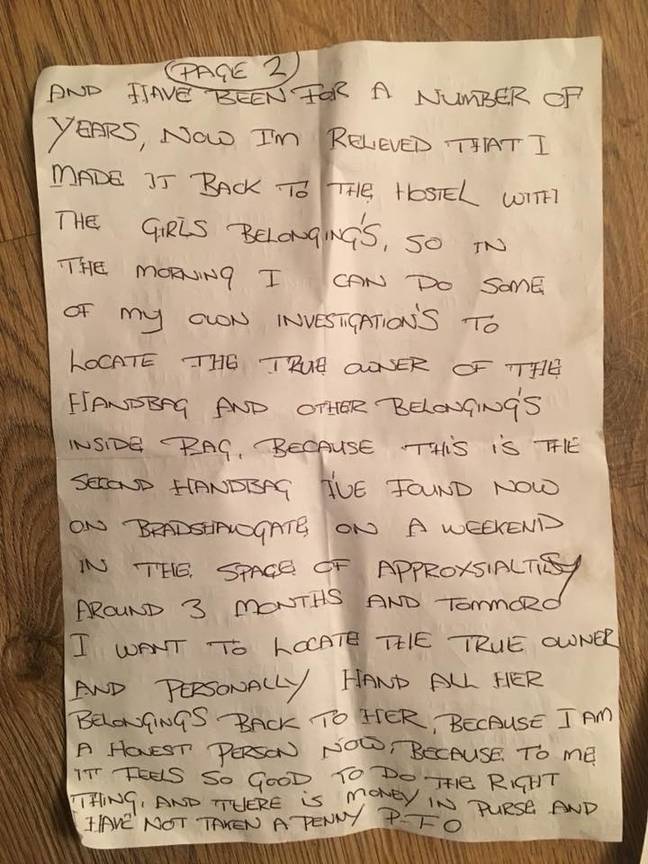 PAGE 2
AND HAVE BEEN FOR A NUMBER OF
YEARS, NOW I'M RELIEVED THAT I
MADE IT BACK TO THE HOSTEL WITH
THE GIRLS BELONGING'S, SO IN
THE MORNING I CAN DO SOME
OF MY OWN INVESTIGATION'S TO
LOCATE THE TRUE OWNER OF THE
HANDBAG AND OTHER BELONGING'S
INSIDE BAG, BECAUSE THIS IS THE
SECOND HANDBAG I'VE FOUND NOW
ON BRADSHAWGATE ON A WEEKEND
IN THE SPACE OF APPROXSIALTISY
AROUND 3 MONTHS AND TOMMORO
I WANT TO LOCATE THE TRUE OWNER
AND PERSONALLY HAND ALL HER
BELONGINGS BACK TO HER, BECAUSE I AM
A HONEST PERSON NOW, BECAUSE TO ME
IT FEELS SO GOOD TO DO THE RIGHT
THING, AND THERE IS MONEY IN PURSE AND
HAVE NOT TAKEN A PENNY P-T-O